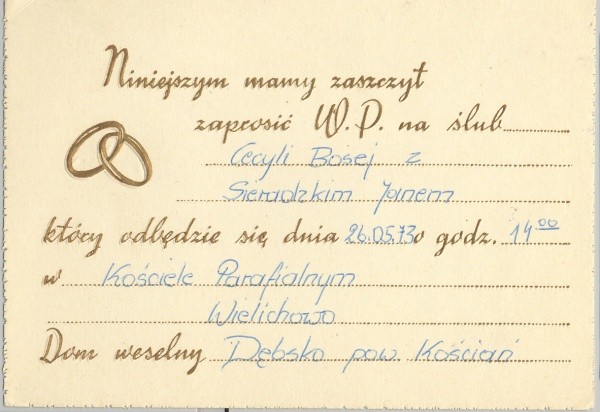 Niniejszym mamy zaszczyt
zaprosić W.P. na ślub
Cecyli Bosej z
Sieradzkim Janem
który odbędzie się dnia 26.05.73 o godz. 14⁰⁰
w Kościele Parafialnym
Wielichowo
Dom weselny Dębsko pow. Kościań